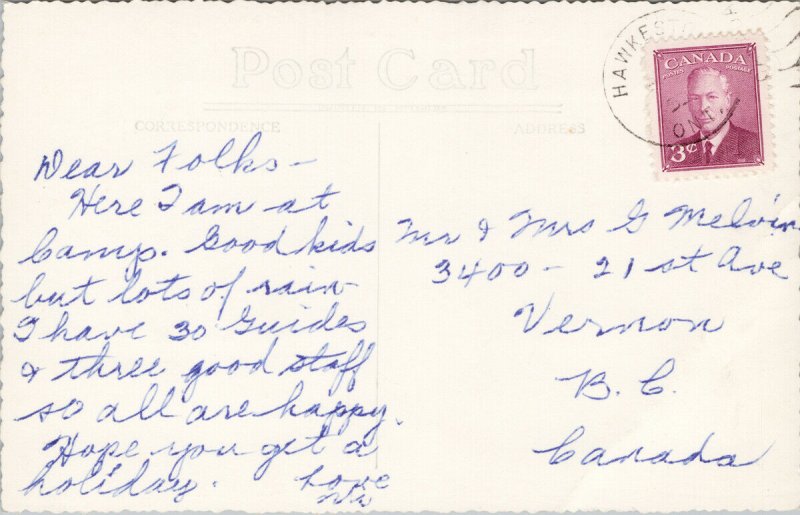 Post Card
CORRESPONDENCE
ADDRESS
HAWKEST
ONT
CANADA
POSTES POSTAGE
3¢
Dear Folks –
Here I am at
Camp. Good kids
but lots of rain
I have 30 Guides
& three good staff
so all are happy.
Hope you get a
holiday. Love
Mr & Mrs G Melvin
3400 – 21st Ave
Vernon
B. C.
Canada